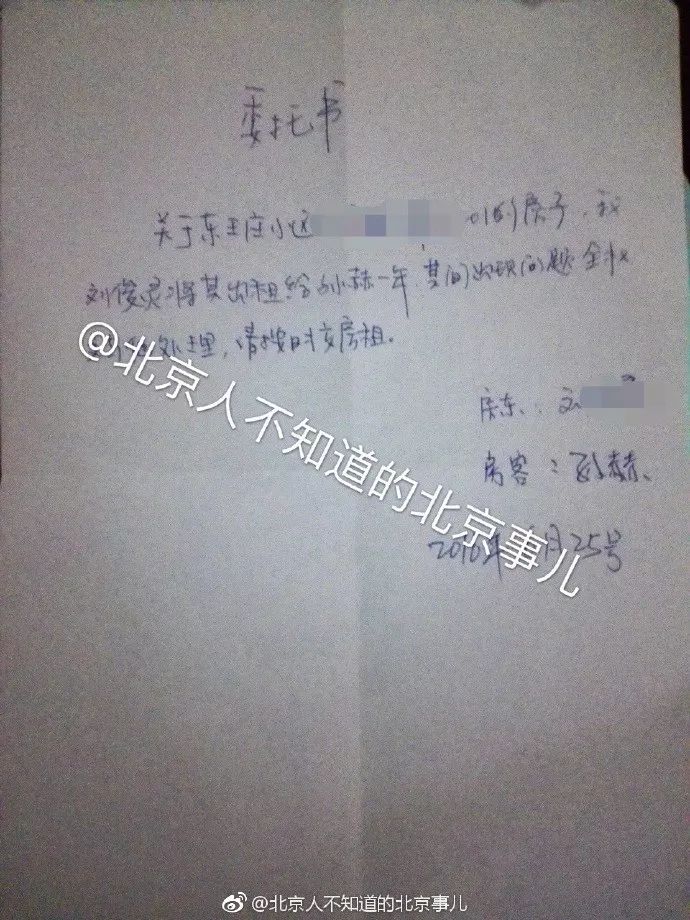 委托书
关于东王庄小区 01的房子,我
刘俊灵将其出租给孙赫一年,其间出现问题全权
处理,请按时交房租。
房东:刘
房客:孙赫、
2016年 月25号
@北京人不知道的北京事儿
@北京人不知道的北京事儿